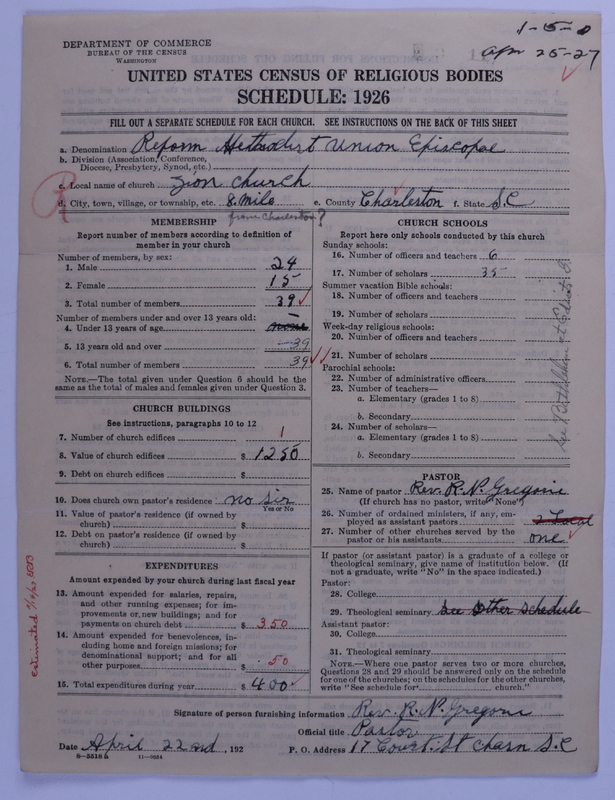 1-5-0
Apr 25-27
DEPARTMENT OF COMMERCE
BUREAU OF THE CENSUS
WASHINGTON
UNITED STATES CENSUS OF RELIGIOUS BODIES
SCHEDULE: 1926
FILL OUT A SEPARATE SCHEDULE FOR EACH CHURCH. SEE INSTRUCTIONS ON THE BACK OF THIS SHEET
a. Denomination Reform Methodist Union Episcopal
b. Division (Association, Conference,
Diocese, Presbytery, Synod, etc.)
c. Local name of church Zion Church
d. City, town, village, or township, etc. 8. mile e. County Charleston f. State S.C
from Charleston?
MEMBERSHIP
Report number of members according to definition of
member in your church
Number of members, by sex:
1. Male 24
2. Female 15
3. Total number of members 39
Number of members under and over 13 years old:
4. Under 13 years of age none
5. 13 years old and over 39
6. Total number of members 39
NOTE.—The total given under Question 6 should be the
same as the total of males and females given under Question 3.
CHURCH BUILDINGS
See instructions, paragraphs 10 to 12
7. Number of church edifices 1
8. Value of church edifices $ 1250
9. Debt on church edifices $
10. Does church own pastor's residence no sir
Yes or No
11. Value of pastor's residence (if owned by
church) $
12. Debt on pastor's residence (if owned by
church) $
EXPENDITURES
Amount expended by your church during last fiscal year
13. Amount expended for salaries, repairs,
and other running expenses; for im-
provements or new buildings; and for
payments on church debt $ 350
14. Amount expended for benevolences, in-
cluding home and foreign missions; for
denominational support; and for all
other purposes $ 50
15. Total expenditures during year $ 400
CHURCH SCHOOLS
Report here only schools conducted by this church
Sunday schools:
16. Number of officers and teachers 6
17. Number of scholars 35
Summer vacation Bible schools:
18. Number of officers and teachers
19. Number of scholars
Week-day religious schools:
20. Number of officers and teachers
21. Number of scholars
Parochial schools:
22. Number of administrative officers
23. Number of teachers—
a. Elementary (grades 1 to 8)
b. Secondary
24. Number of scholars—
a. Elementary (grades 1 to 8)
b. Secondary
PASTOR
25. Name of pastor Rev. R. N. Gregorie
(If church has no pastor, write "None")
26. Number of ordained ministers, if any, em-
ployed as assistant pastors 2 Local
27. Number of other churches served by the
pastor or his assistants one
If pastor (or assistant pastor) is a graduate of a college or
theological seminary, give name of institution below. (If
not a graduate, write "No" in the space indicated.)
Pastor:
28. College
29. Theological seminary See Other Schedule
Assistant pastor:
30. College
31. Theological seminary
NOTE.—Where one pastor serves two or more churches,
Questions 28 and 29 should be answered only on the schedule
for one of the churches; on the schedules for the other churches,
write "See schedule for church."
Signature of person furnishing information Rev. R. N. Gregorie
Official title Pastor
Date April 22nd, 192 P. O. Address 17 Court. St Chasn S.C
8—5518 a 11—9054